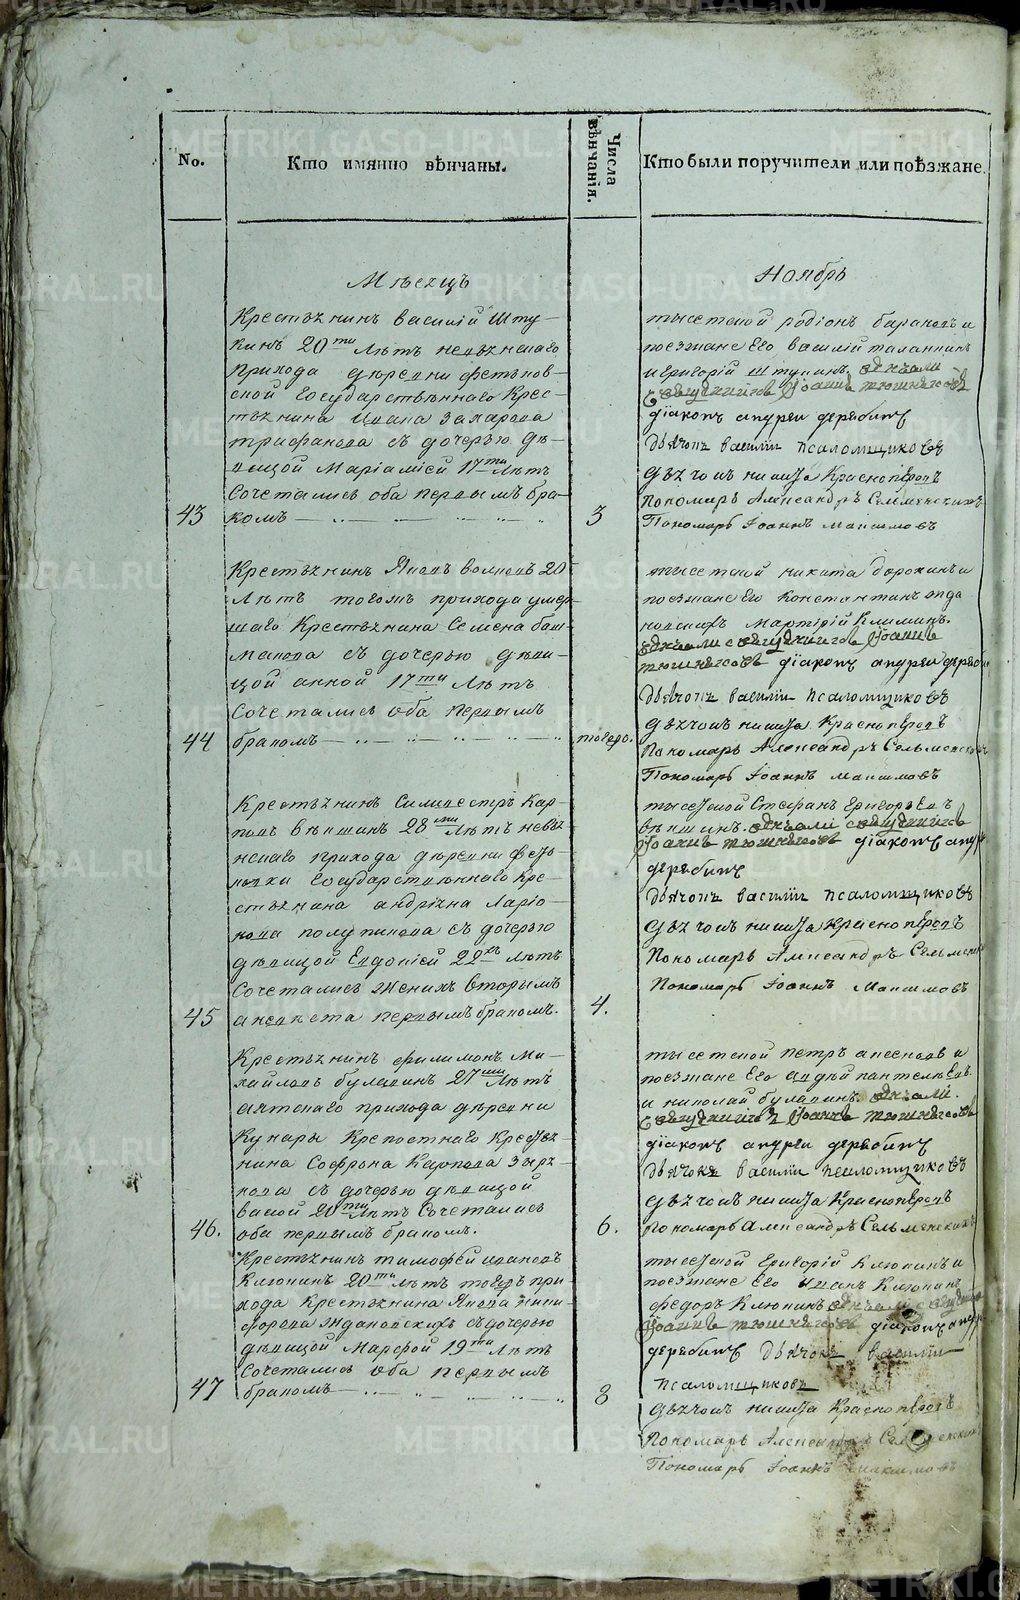 No.
Кто имянно вѣнчаны.
Числа вѣнчанія.
Кто были поручители или поѣзжане.
Мѣсецъ
Ноябрь
Крестьянинъ Василій Шту-
кинъ 20ти Лѣтъ
прихода дѣревни
ской Государственнаго Крес-
тьянина Ивана Захарова
Трифанова съ дочерью дѣ-
вицой Маріамiей 17ти Лѣтъ
Сочетались оба первымъ бра-
43
комъ
3
тысетской родіонъ барановъ и
поезжане Его василій
и григорій штукинъ. вѣнчали
Священникъ Іоаннъ
діаконъ андреи дерябинъ
дьячокъ василіи псаломщиковъ
дьячокъ никита Красноперовъ
Пономарь Александръ
Пономарь Іоаннъ Максимовъ
Крестьянинъ Яковъ Волковъ 20
Лѣтъ тогожъ прихода умер-
шаго Крестьянина Семена баш-
макова съ дочерью дѣви-
цой анной 17ти Лѣтъ
Сочетались оба первымъ
44
бракомъ
тогоже.
тысетской никита дорохинъ и
поезжане Его Константинъ
Мартірій Климинъ.
вѣнчали священникъ Іоаннъ
діаконъ андреи
дьячокъ василіи псаломщиковъ
дьячокъ никита Красноперовъ
Пономарь Александръ
Пономарь Іоаннъ Максимовъ
Крестьянинъ Сильвестръ Кар-
повъ Вѣкшинъ 28ми Лѣтъ невья-
нскаго прихода дѣревни федь-
ковки Государственнаго Кре-
стьянина андріяна Ларіо-
нова полупанова съ дочерью
дѣвицой Евдокіей 22хъ Лѣтъ
Сочетались Женихъ вторымъ
45
а невѣста первымъ бракомъ.
4.
тысетской Стефанъ Григорьевъ
вѣкшинъ. вѣнчали священникъ
Іоаннъ діаконъ
дерябинъ
дьячокъ василіи псаломщиковъ
дьячокъ никита Красноперовъ
Пономарь Александръ
Пономарь Іоаннъ Максимовъ
Крестьянинъ филимонъ Ми-
хайловъ булакинъ 27ми Лѣтъ
аятскаго прихода дѣревни
Кунары Крепостнаго Крестья-
нина Софрона Карпова Зыря-
нова съ дочерью дѣвицой
васой 20ти Лѣтъ Сочетались
46.
оба первымъ бракомъ.
6.
тысетской петръ аксеновъ и
поезжане Его авдѣй пантелѣевъ
и николай булакинъ. вѣнчали.
Священникъ Іоаннъ
діаконъ андреи дерябинъ
дьячокъ василіи псаломщиковъ
дьячокъ никита Красноперовъ
пономарь Александръ
Крестьянинъ тимофей ивановъ
Клюкинъ 20ти лѣтъ тогожъ при-
хода Крестьянина Якова ники-
форова Ждановскихъ съ дочерью
дѣвицой Марфой 19ти Лѣтъ
Сочетались оба первымъ
47
бракомъ
8
тысетской Григорій Клюкинъ и
поезжане Его Иванъ Клюкинъ
федоръ Клюкинъ
Іоаннъ діаконъ
дерябинъ дьячокъ василіи
псаломщиковъ
дьячокъ никита Красноперовъ
Пономарь Александръ
Пономарь Іоаннъ Максимовъ
METRIKI.GASO-URAL.RU